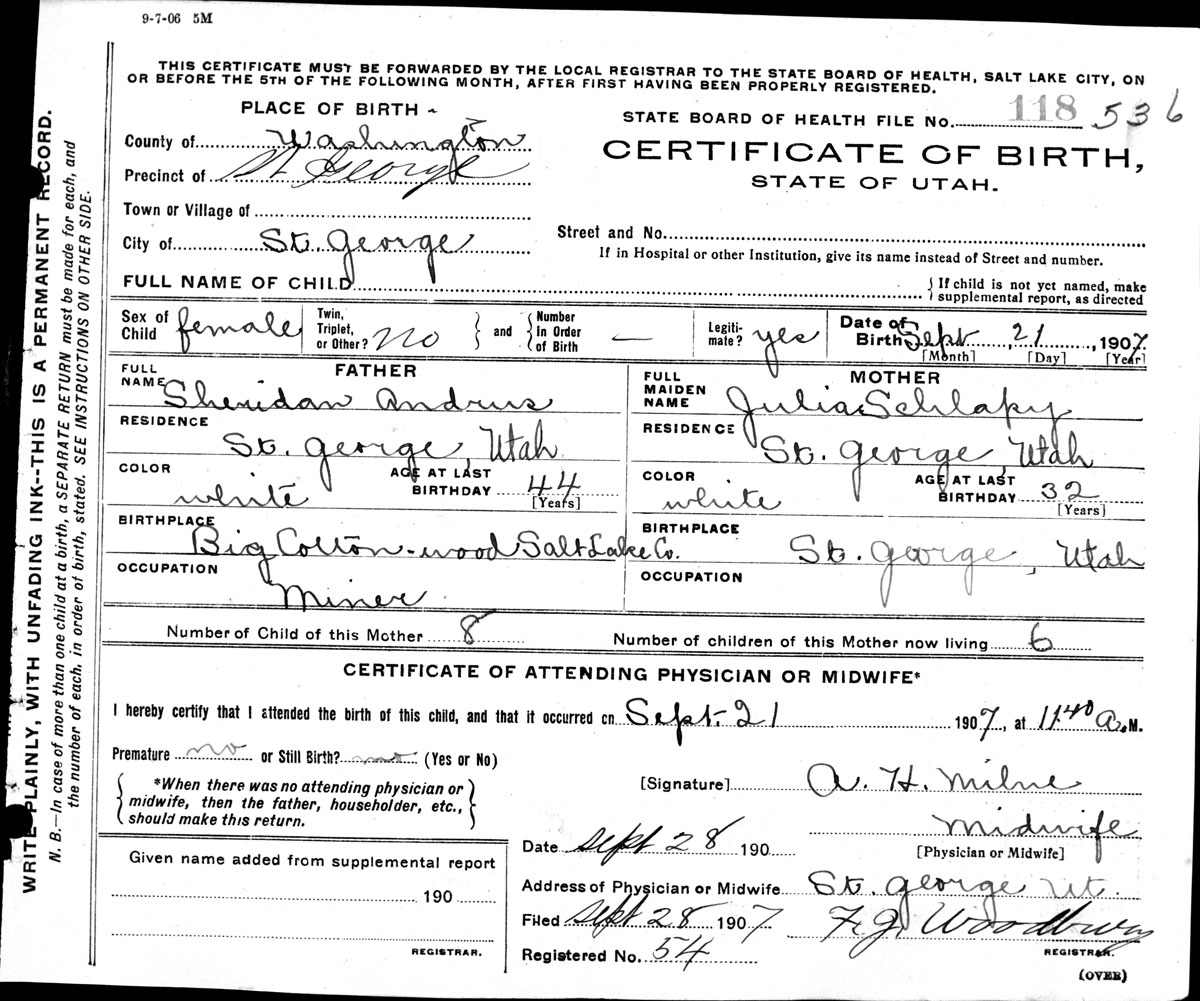 9-7-06 5M
THIS CERTIFICATE MUST BE FORWARDED BY THE LOCAL REGISTRAR TO THE STATE BOARD OF HEALTH, SALT LAKE CITY, ON
OR BEFORE THE 5TH OF THE FOLLOWING MONTH, AFTER FIRST HAVING BEEN PROPERLY REGISTERED.
PLACE OF BIRTH
STATE BOARD OF HEALTH FILE No. 118 536
County of Washington
CERTIFICATE OF BIRTH,
Precinct of St George
STATE OF UTAH.
Town or Village of
City of St. George
Street and No.
If in Hospital or other Institution, give its name instead of Street and number.
FULL NAME OF CHILD
{ If child is not yet named, make
supplemental report, as directed
Sex of Child female
Twin, Triplet, or Other? No } and { Number In Order of Birth —
Legiti-mate? yes
Date of Birth Sept 21, 1907.
[Month] [Day] [Year]
FATHER
FULL NAME Sheridan Andrus
RESIDENCE
St. George, Utah
COLOR white AGE AT LAST BIRTHDAY 44
[Years]
BIRTHPLACE
Big Cotton-wood Salt Lake Co.
OCCUPATION
Miner
MOTHER
FULL MAIDEN NAME Julia Schlapy
RESIDENCE
St. George, Utah
COLOR white AGE AT LAST BIRTHDAY 32
[Years]
BIRTHPLACE
St. George, Utah
OCCUPATION
Number of Child of this Mother 8 Number of children of this Mother now living 6
CERTIFICATE OF ATTENDING PHYSICIAN OR MIDWIFE*
I hereby certify that I attended the birth of this child, and that it occurred on Sept. 21 1907, at 11.40 A.M.
Premature no or Still Birth? no (Yes or No)
{ *When there was no attending physician or
midwife, then the father, householder, etc.,
should make this return. }
[Signature] A. H. Milne
Midwife
[Physician or Midwife]
Date Sept 28 190
Address of Physician or Midwife St. George Ut.
Filed Sept 28 1907 F. J. Woodbury
REGISTRAR.
Registered No. 54
(OVER)
Given name added from supplemental report
190
REGISTRAR.
WRITE PLAINLY, WITH UNFADING INK--THIS IS A PERMANENT RECORD.
N. B.—In case of more than one child at a birth, a SEPARATE RETURN must be made for each, and
the number of each, in order of birth, stated. SEE INSTRUCTIONS ON OTHER SIDE.